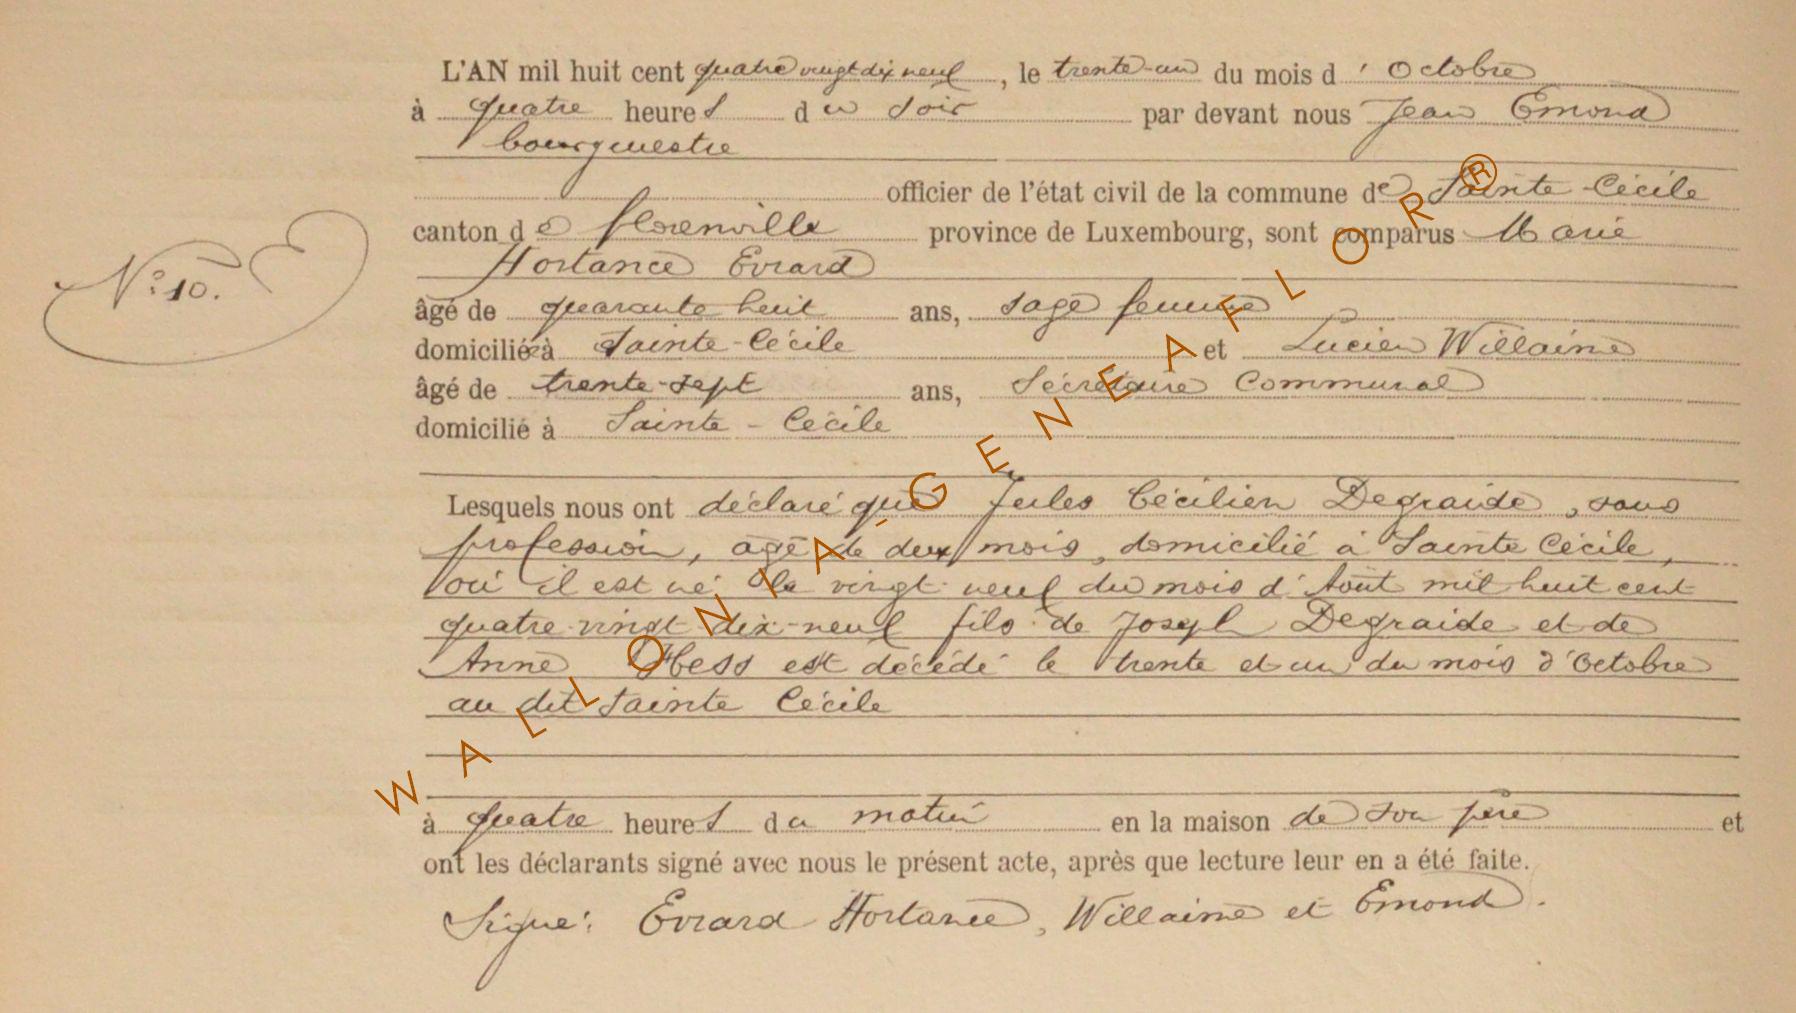 L'AN mil huit cent quatre vingt dix neuf, le trente-un du mois d' Octobre
à quatre heures du soir par devant nous Jean Emond
bourgmestre
officier de l'état civil de la commune de Sainte-Cécile
canton de florenville province de Luxembourg, sont comparus Marie
Hortance Evrard
N° 10.
âgé de quarante huit ans, sage femme
domiciliée à Sainte-Cécile et Lucien Willaime
âgé de trente-sept ans, Secrétaire Communal
domicilié à Sainte-Cécile
Lesquels nous ont déclaré que Jules Cécilien Degraide, sans
profession, âgé de deux mois, domicilié à Sainte Cécile,
où il est né le vingt neuf du mois d'Août mil huit cent
quatre-vingt dix-neuf fils de Joseph Degraide et de
Anne Hess est décédé le trente et un du mois d'Octobre
au dit Sainte Cécile
à quatre heures du matin en la maison de son père et
ont les déclarants signé avec nous le présent acte, après que lecture leur en a été faite.
Signé: Evrard Hortance, Willaime et Emond.
WALLONIA-GENEAFLOR®